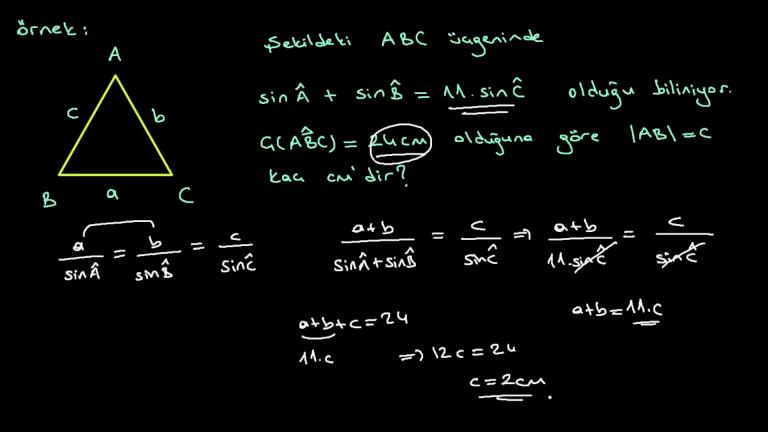 örnek:
Şekildeki ABC üçgeninde
sin + sinB̂ = 11.sinĈ olduğu biliniyor.
Ç(AB̂C) = 24cm olduğuna göre |AB|=c
kaç cm'dir?
A
c b
B a C
a/sin = b/sinB̂ = c/sinĈ
a+b/sinÂ+sinB̂ = c/sinĈ ⇒ a+b/11.sinĈ = c/sinĈ
a+b=11.c
a+b+c=24
11.c ⇒ 12c=24
c=2cm.